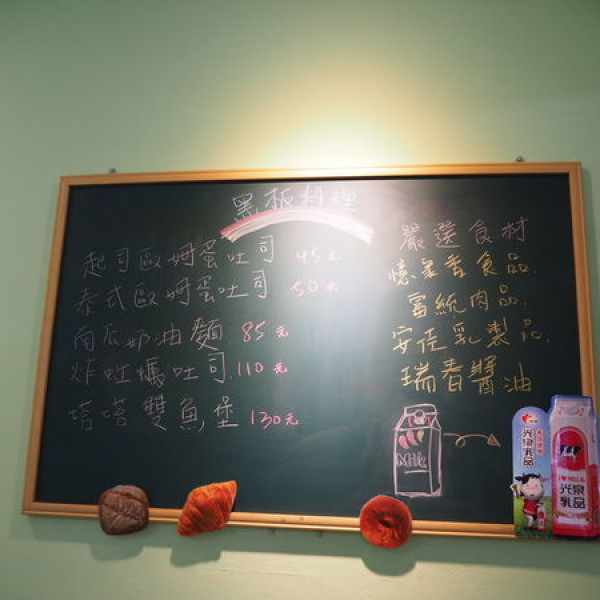 黑板料理
起司歐姆蛋吐司 45元
泰式歐姆蛋吐司 50元
南瓜奶油麵 85元
炸蚵蠣吐司 110元
塔塔雙魚堡 130元
嚴選食材
憶霖食品
富統肉品
安佳乳製品
瑞春醬油
Milk
光泉
乳品
光泉
乳品